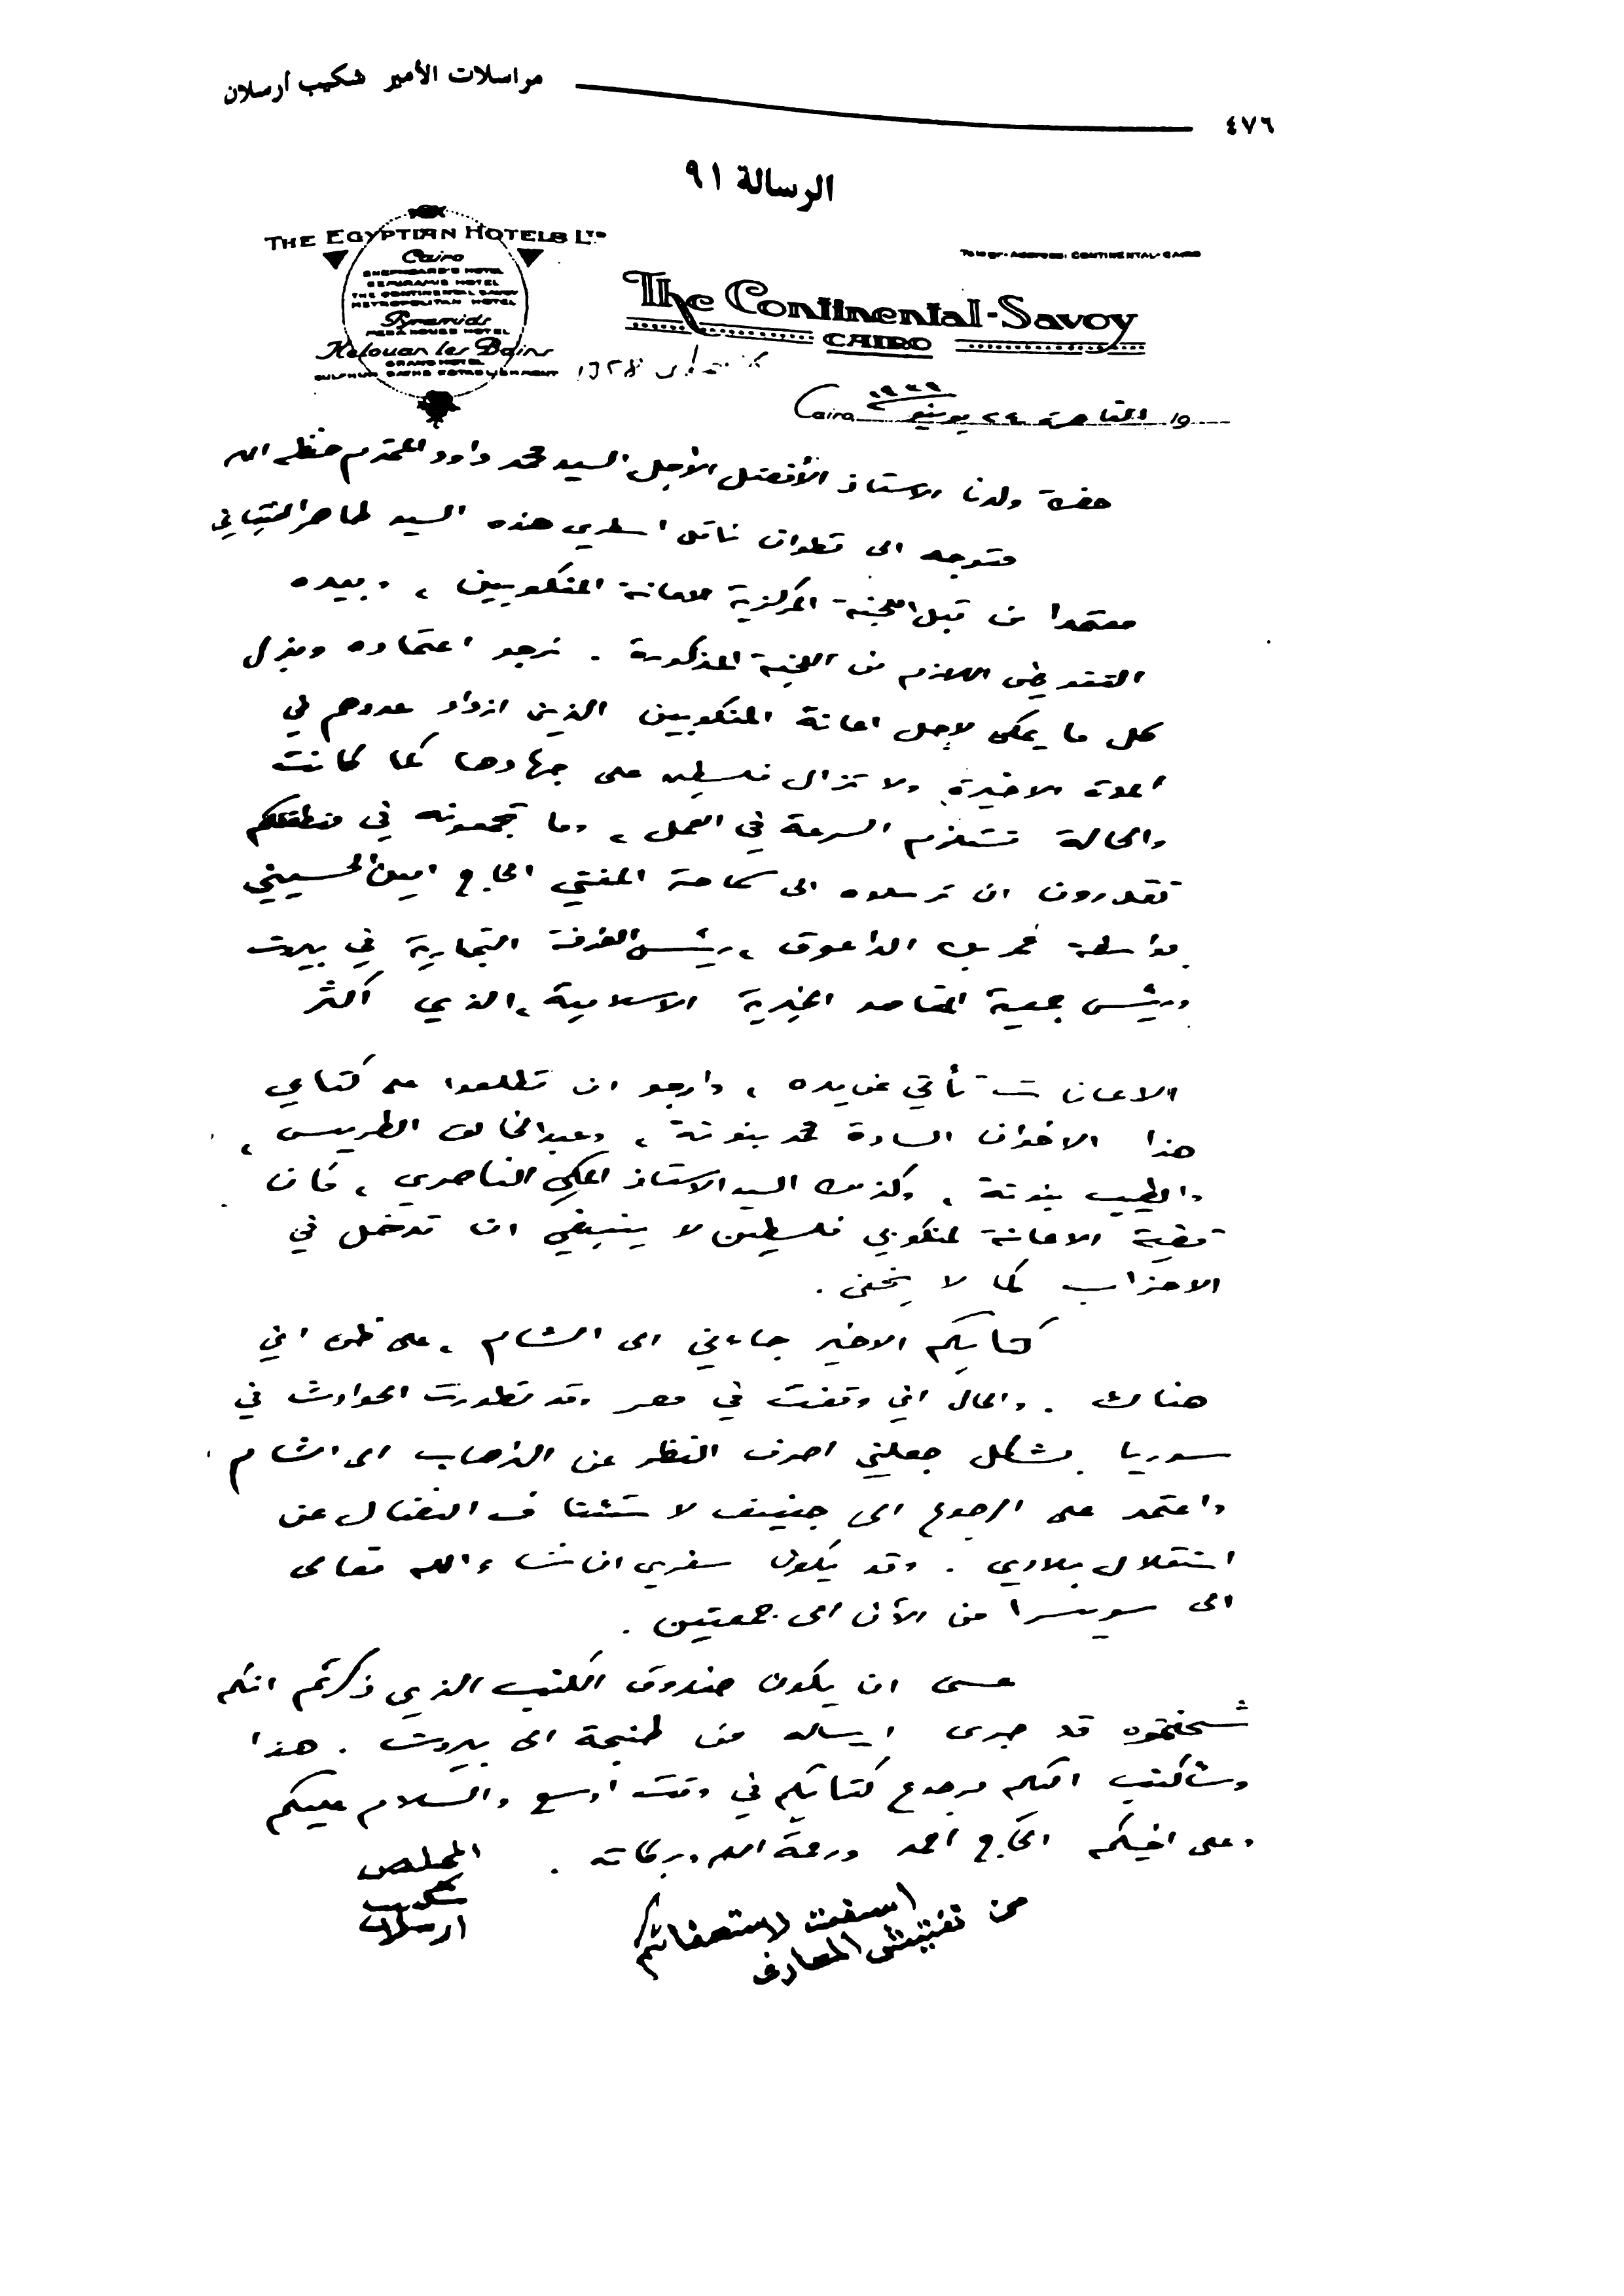 مراسلات الأمير شكيب أرسلان
٤٧٦
الرسالة ٩١
THE EGYPTIAN HOTELS LTD
Cairo
SHEPHEARD'S HOTEL
SEMIRAMIS HOTEL
THE CONTINENTAL SAVOY
METROPOLITAN HOTEL
Pyramids
MENA HOUSE HOTEL
Helouan les Bains
GRAND HOTEL
SULPHUR BATHS ESTABLISHMENT
Telegr. Address: CONTINENTAL-CAIRO
The Continental-Savoy
CAIRO
Cairo القاهرة ٢٤ يونيو ١٩٣٩ 19
حضرة ولدنا الاستاذ الأفضل الأجل السيد محمد داود المحترم حفظه الله
متوجه الى تطوان ناقل اسطري هذه السيد طاهر الفتياني
معتمدا من قبل اللجنة المركزية لاعانة المنكوبين ، وبيده
التفويض اللازم من اللجنة المذكورة . نرجو اعتماده وبذل
كل ما يمكن لاجل اعانة المنكوبين الذين ازداد عددهم في
المدة الاخيرة ولا تزال فلسطين على جهادها كما كانت
والحالة تستلزم السرعة في العمل ، وما تجمعونه في منطقتكم
تقدرون ان ترسلوه الى سماحة المفتي الحاج امين الحسيني
بواسطة عمر بك الداعوق ، رئيس الغرفة التجارية في بيروت
ورئيس جمعية المقاصد الخيرية الاسلامية ، الذي أكثر
الاعانات تأتي عن يده ، وارجو ان تطلعوا على كتابي
هذا الاخوان السادة محمد بنونة ، وعبد الخالق الطريس ،
والطيب بنونة ، وكذلك السيد الاستاذ المكي الناصري ، فان
قضية الاعانة لمنكوبي فلسطين لا ينبغي ان تدخل في
الاحزاب كما لا يخفى .
كتابكم الاخير جاءني الى الشام ، على ظن اني
هناك . والحال اني وقفت في مصر وقد تطورت الحوادث في
سوريا بشكل جعلني اصرف النظر عن الذهاب الى الشام
واعتمد على الرجوع الى جنيف لاستئناف النضال عن
استقلال بلادي . وقد يكون سفري ان شاء الله تعالى
الى سويسرا من الآن الى جمعتين .
عسى ان يكون صندوق الكتب الذي ذكرتم انكم
شحنتموه قد جرى ارساله من طنجة الى بيروت . هذا
وسأكتب اليكم مرجوع كتابكم في وقت اوسع والسلام عليكم
وعلى اخيكم الحاج احمد ورحمة الله وبركاته .
المخلص
شكيب
ارسلان
اسفت لاستعفائكم
من تفتيش المعارف